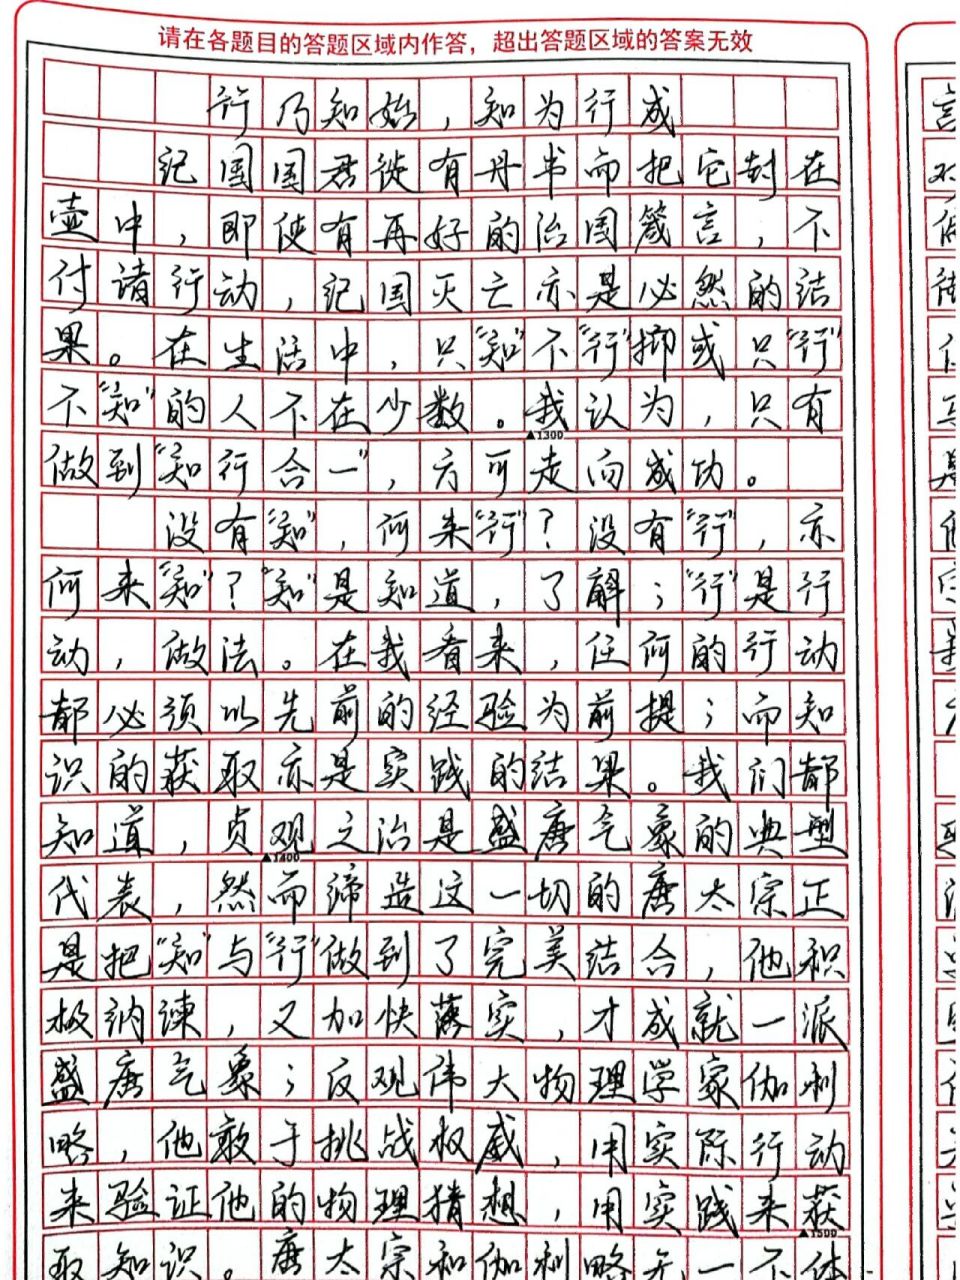 请在各题目的答题区域内作答，超出答题区域的答案无效
行乃知始，知为行成
纪国国君徒有丹书而把它封在
壶中，即使有再好的治国箴言，不
付诸行动，纪国灭亡亦是必然的结
果。在生活中，只“知”不“行”抑或只“行”
不“知”的人不在少数。我认为，只有
▲1300
做到“知行合一”，方可走向成功。
没有“知”，何来“行”？没有“行”，亦
何来“知”？“知”是知道，了解；“行”是行
动，做法。在我看来，任何的行动
都必须以先前的经验为前提；而知
识的获取亦是实践的结果。我们都
知道，贞观之治是盛唐气象的典型
▲1400
代表，然而缔造这一切的唐太宗正
是把“知”与“行”做到了完美结合，他积
极纳谏，又加快落实，才成就一派
盛唐气象；反观伟大物理学家伽利
略，他敢于挑战权威，用实际行动
来验证他的物理猜想，用实践来获
▲1500
取知识。唐太宗和伽利略无一不体
言